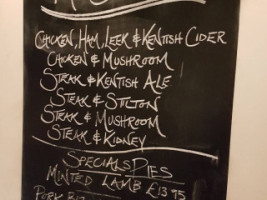 Chicken, Ham, Leek & Kentish Cider
Chicken & Mushroom
Steak & Kentish Ale
Steak & Stilton
Steak & Mushroom
Steak & Kidney
Specials Pies
Minted Lamb £13.95
Pork